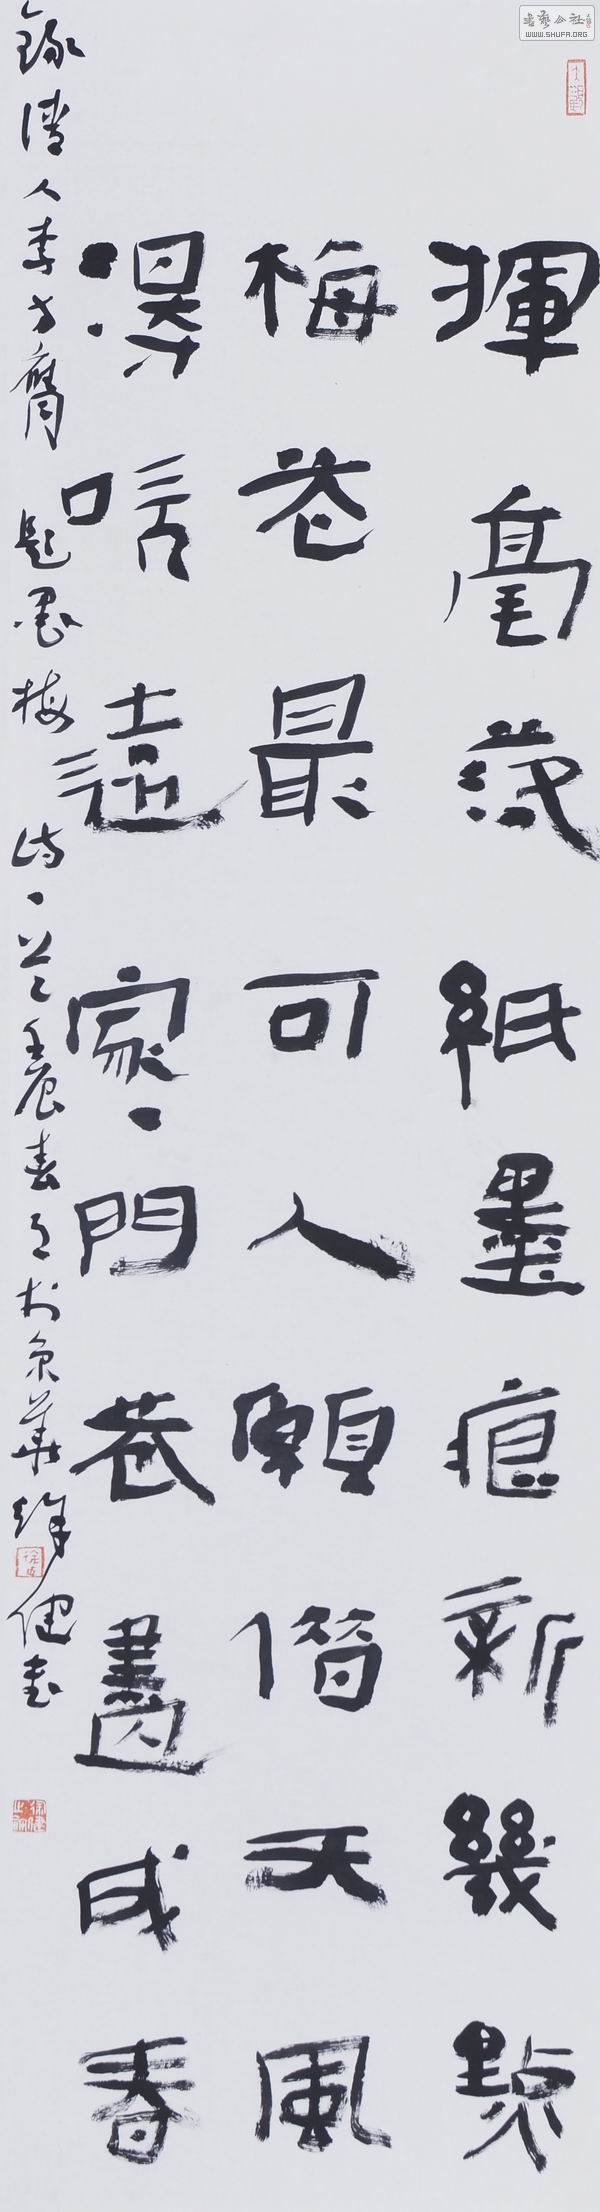 書藝公社
WWW.SHUFA.ORG
揮毫落紙墨痕新幾點
梅花最可人願借天風
得吹遠家〻門巷盡成春
錄清人李方膺題墨梅詩一首壬辰春月於京華徐健書